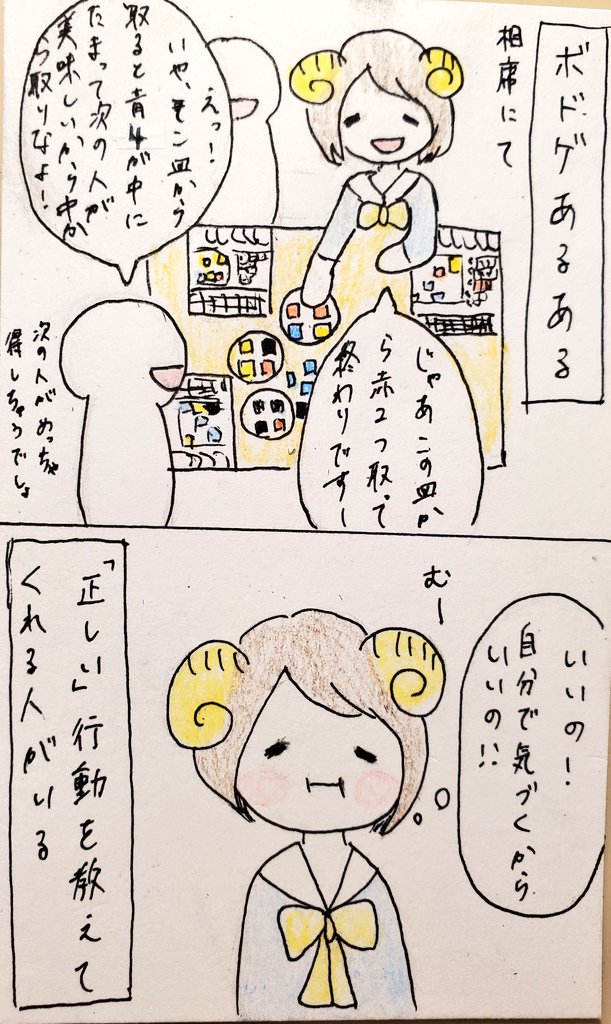 ボドゲあるある
相席にて
じゃあこの皿か
ら赤2つ取って
終わりですー
えっ！
いや、そこ皿から
取ると青4が中に
たまって次の人が
美味しいから中か
ら取りなよ！
次の人がめっちゃ
得しちゃうでしょ
いいの！
自分で気づくから
いいの!!
むー
「正しい」行動を教えて
くれる人がいる